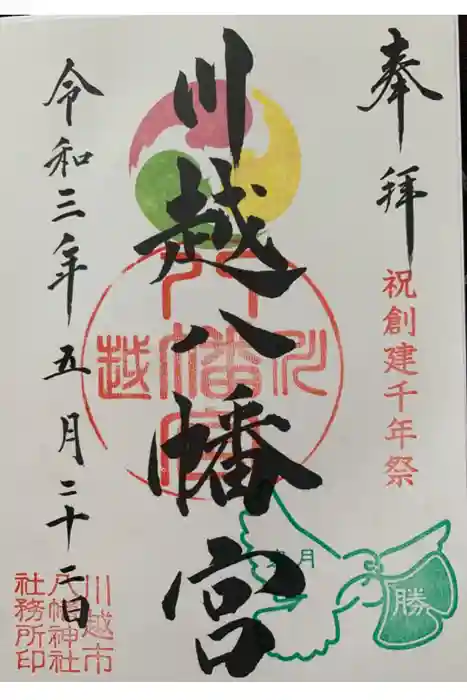 奉拝
祝創建千年祭
川越八幡宮
川越八幡宮
五月
勝
令和三年五月二十二日
川越市
八幡神社
社務所印